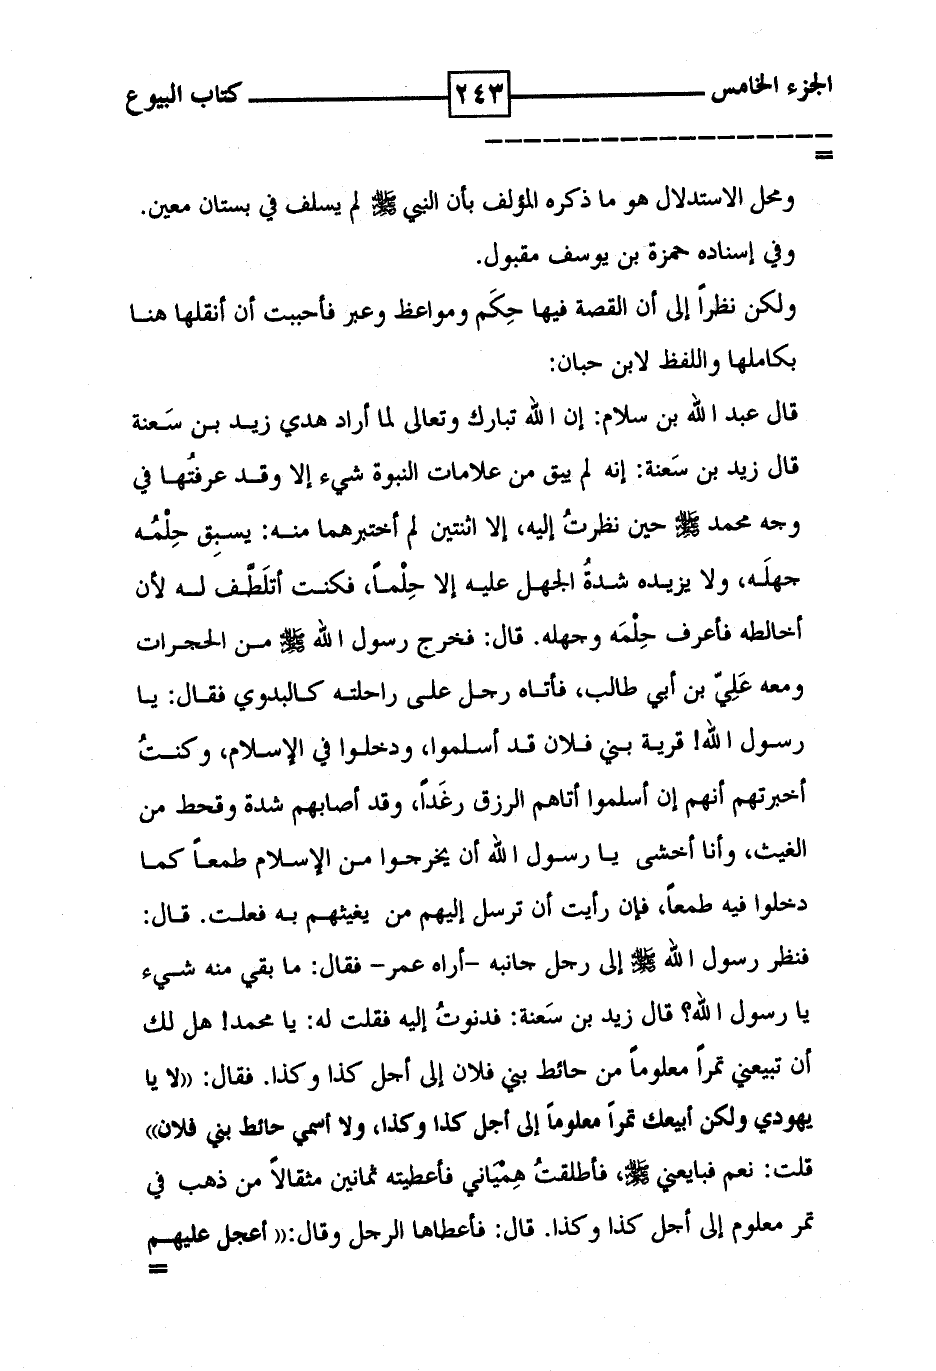 الجزء الخامس ٢٤٣ كتاب البيوع
=
ومحل الاستدلال هو ما ذكره المؤلف بأن النبي ﷺ لم يسلف في بستان معين.
وفي إسناده حمزة بن يوسف مقبول.
ولكن نظراً إلى أن القصة فيها حِكَم ومواعظ وعبر فأحببت أن أنقلها هنا
بكاملها واللفظ لابن حبان:
قال عبد الله بن سلام: إن الله تبارك وتعالى لما أراد هدي زيد بن سَعنة
قال زيد بن سَعنة: إنه لم يبق من علامات النبوة شيء إلا وقد عرفتُها في
وجه محمد ﷺ حين نظرتُ إليه، إلا اثنتين لم أختبرهما منه: يسبِق حِلْمُه
جهلَه، ولا يزيده شدةُ الجهل عليه إلا حِلْماً، فكنت أتلَطَّف له لأن
أخالطه فأعرف حِلْمَه وجهله. قال: فخرج رسول الله ﷺ من الحجرات
ومعه عَلِيّ بن أبي طالب، فأتاه رجل على راحلته كالبدوي فقال: يا
رسول الله! قرية بني فلان قد أسلموا، ودخلوا في الإسلام، وكنتُ
أخبرتهم أنهم إن أسلموا أتاهم الرزق رغَداً، وقد أصابهم شدة وقحط من
الغيث، وأنا أخشى يا رسول الله أن يخرجوا من الإسلام طمعاً كما
دخلوا فيه طمعاً، فإن رأيت أن ترسل إليهم من يغيثهم به فعلت. قال:
فنظر رسول الله ﷺ إلى رجل جانبه -أراه عمر- فقال: ما بقي منه شيء
يا رسول الله؟ قال زيد بن سَعنة: فدنوتُ إليه فقلت له: يا محمد! هل لك
أن تبيعني تمراً معلوماً من حائط بني فلان إلى أجل كذا وكذا. فقال: ((لا يا
يهودي ولكن أبيعك تمراً معلوماً إلى أجل كذا وكذا، ولا أسمي حائط بني فلان))
قلت: نعم فبايعني ﷺ، فأطلقتُ هِمْيَاني فأعطيته ثمانين مثقالاً من ذهب في
تمر معلوم إلى أجل كذا وكذا. قال: فأعطاها الرجل وقال:(( أعجل عليهم
=